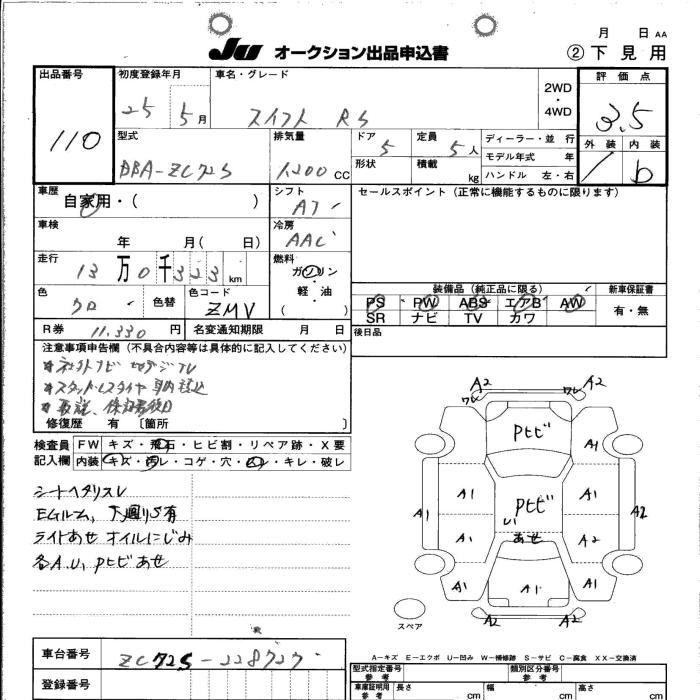 月 日 AA
JU オークション出品申込書 ②下見用
出品番号 110
初度登録年月 25 5月
車名・グレード スイフト RS
2WD・4WD
評価点 3.5
外装 内装 b
型式 DBA-ZC72S
排気量 1,200 CC
ドア 5 定員 5人
形状 積載 kg
ディーラー・並行
モデル年式 年
ハンドル 左・右
車歴 自家用・( )
シフト AT
セールスポイント(正常に機能するものに限ります)
車検 年 月( 日)
冷房 AAC
走行 13万0千323 km
燃料 ガソリン・軽油 ( )
色 クロ 色替 色コード ZMV
装備品(純正品に限る)
PS PW ABS エアB AW
SR ナビ TV カワ
新車保証書 有・無
R券 11,330 円 名変通知期限 月 日
後日品
注意事項申告欄(不具合内容等は具体的に記入してください)
修復歴 有 〔箇所 〕
検査員記入欄
FW キズ・飛石・ヒビ割・リペア跡・X要
内装 キズ・汚レ・コゲ・穴・ビレ・キレ・破レ
シートヘタリスレ
EGルーム、下廻りS有
ライトあせ オイルにじみ
各A.U, Pヒビ あせ
A2 A2
ワレ ワレ
Pヒビ
A1 A1
A1 A1 Pヒビ A1 A2
A1 U あせ A2
A1 A1 A1
A2 A2
スペア
A-キズ E-エクボ U-凹み W-補修跡 S-サビ C-腐食 XX-交換済
車台番号 ZC72S-228727
登録番号
型式指定番号 参考 類別区分番号 参考
車庫証明用 参考 長さ cm 幅 cm 高さ cm